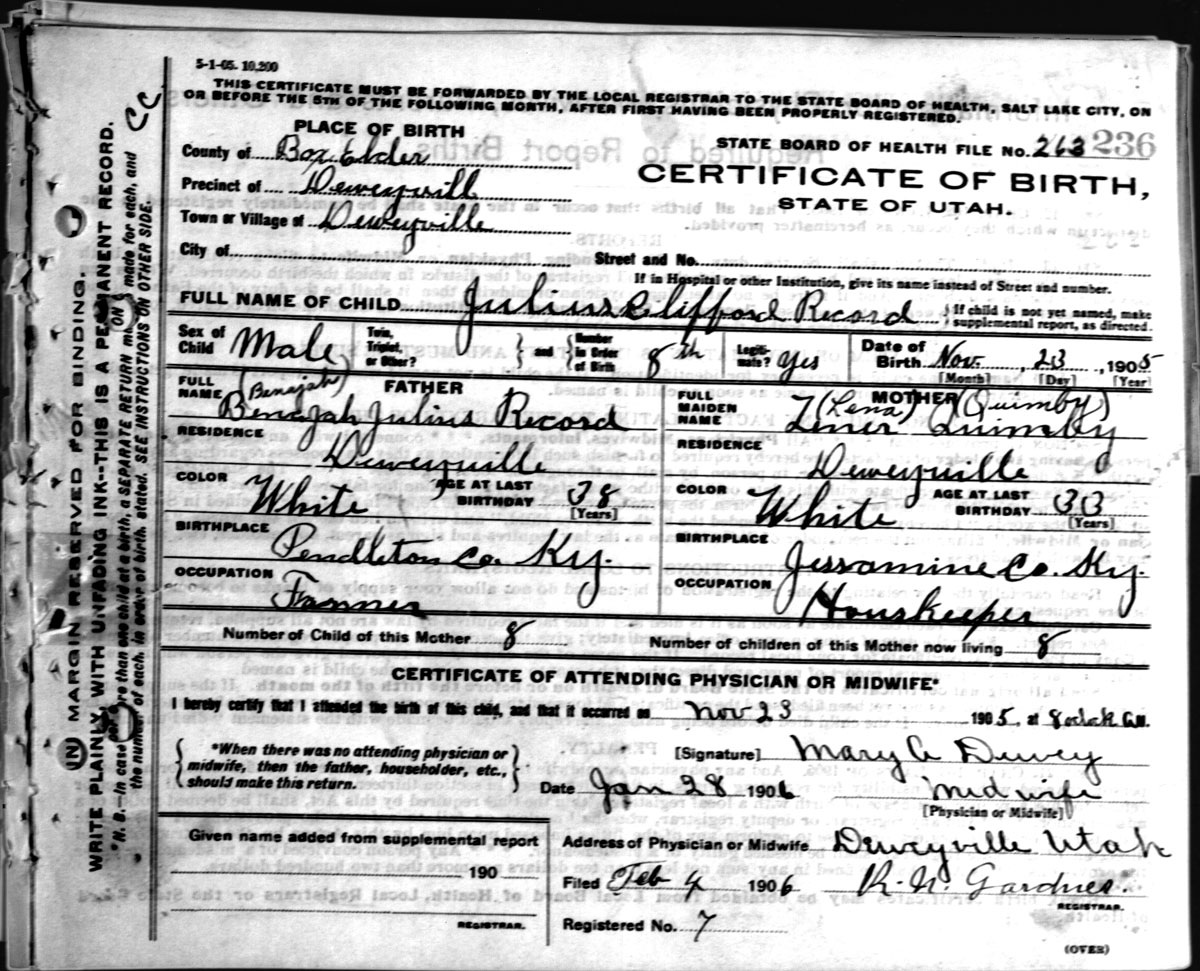 5-1-05. 10,200
THIS CERTIFICATE MUST BE FORWARDED BY THE LOCAL REGISTRAR TO THE STATE BOARD OF HEALTH, SALT LAKE CITY, ON
OR BEFORE THE 5TH OF THE FOLLOWING MONTH, AFTER FIRST HAVING BEEN PROPERLY REGISTERED.
PLACE OF BIRTH
STATE BOARD OF HEALTH FILE No. 263 236
County of Box Elder
CERTIFICATE OF BIRTH,
Precinct of Deweyvill
STATE OF UTAH.
Town or Village of Deweyville
City of Street and No.
If in Hospital or other Institution, give its name instead of Street and number.
FULL NAME OF CHILD Julius Clifford Record { If child is not yet named, make supplemental report, as directed.
Sex of Child Male Twin, Triplet, or Other? } and { Number in Order of Birth 8th Legitimate? Yes Date of Birth Nov. 23, 1905
[Month] [Day] [Year]
FATHER MOTHER
FULL NAME (Benajah) Benajah Julius Record
FULL MAIDEN NAME (Lena) (Quimby) Lener Quimby
RESIDENCE Deweyville
RESIDENCE Deweyville
COLOR White AGE AT LAST BIRTHDAY 38 [Years]
COLOR White AGE AT LAST BIRTHDAY 33 [Years]
BIRTHPLACE Pendleton Co. Ky.
BIRTHPLACE Jessamine Co. Ky.
OCCUPATION Farmer
OCCUPATION Houskeeper
Number of Child of this Mother 8 Number of children of this Mother now living 8
CERTIFICATE OF ATTENDING PHYSICIAN OR MIDWIFE*
I hereby certify that I attended the birth of this child, and that it occurred on Nov 23 1905, at 8
{ *When there was no attending physician or midwife, then the father, householder, etc., should make this return. }
[Signature] Mary A Dewey
Date Jan 28 1906 Midwife
[Physician or Midwife]
Given name added from supplemental report
190
REGISTRAR.
Address of Physician or Midwife Deweyville Utah
Filed Feb 4 1906 R. N. Gardner.
REGISTRAR.
Registered No. 7
(OVER)
IN MARGIN RESERVED FOR BINDING.
WRITE PLAINLY, WITH UNFADING INK--THIS IS A PERMANENT RECORD.
*N. B.--In case of more than one child at a birth, a SEPARATE RETURN must be made for each, and
the number of each, in order of birth, stated. SEE INSTRUCTIONS ON OTHER SIDE.
CC